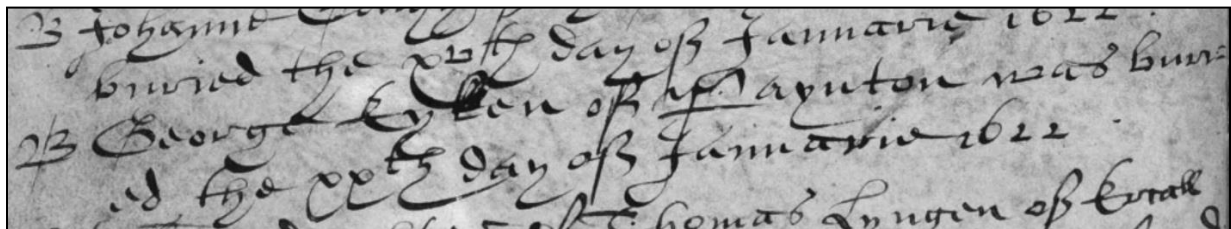 B Johanne
buried the xvth day of Januarie 1622
B George Kyken of Paynton was buri
ed the xxth day of Januarie 1622
Thomas Lyngen of